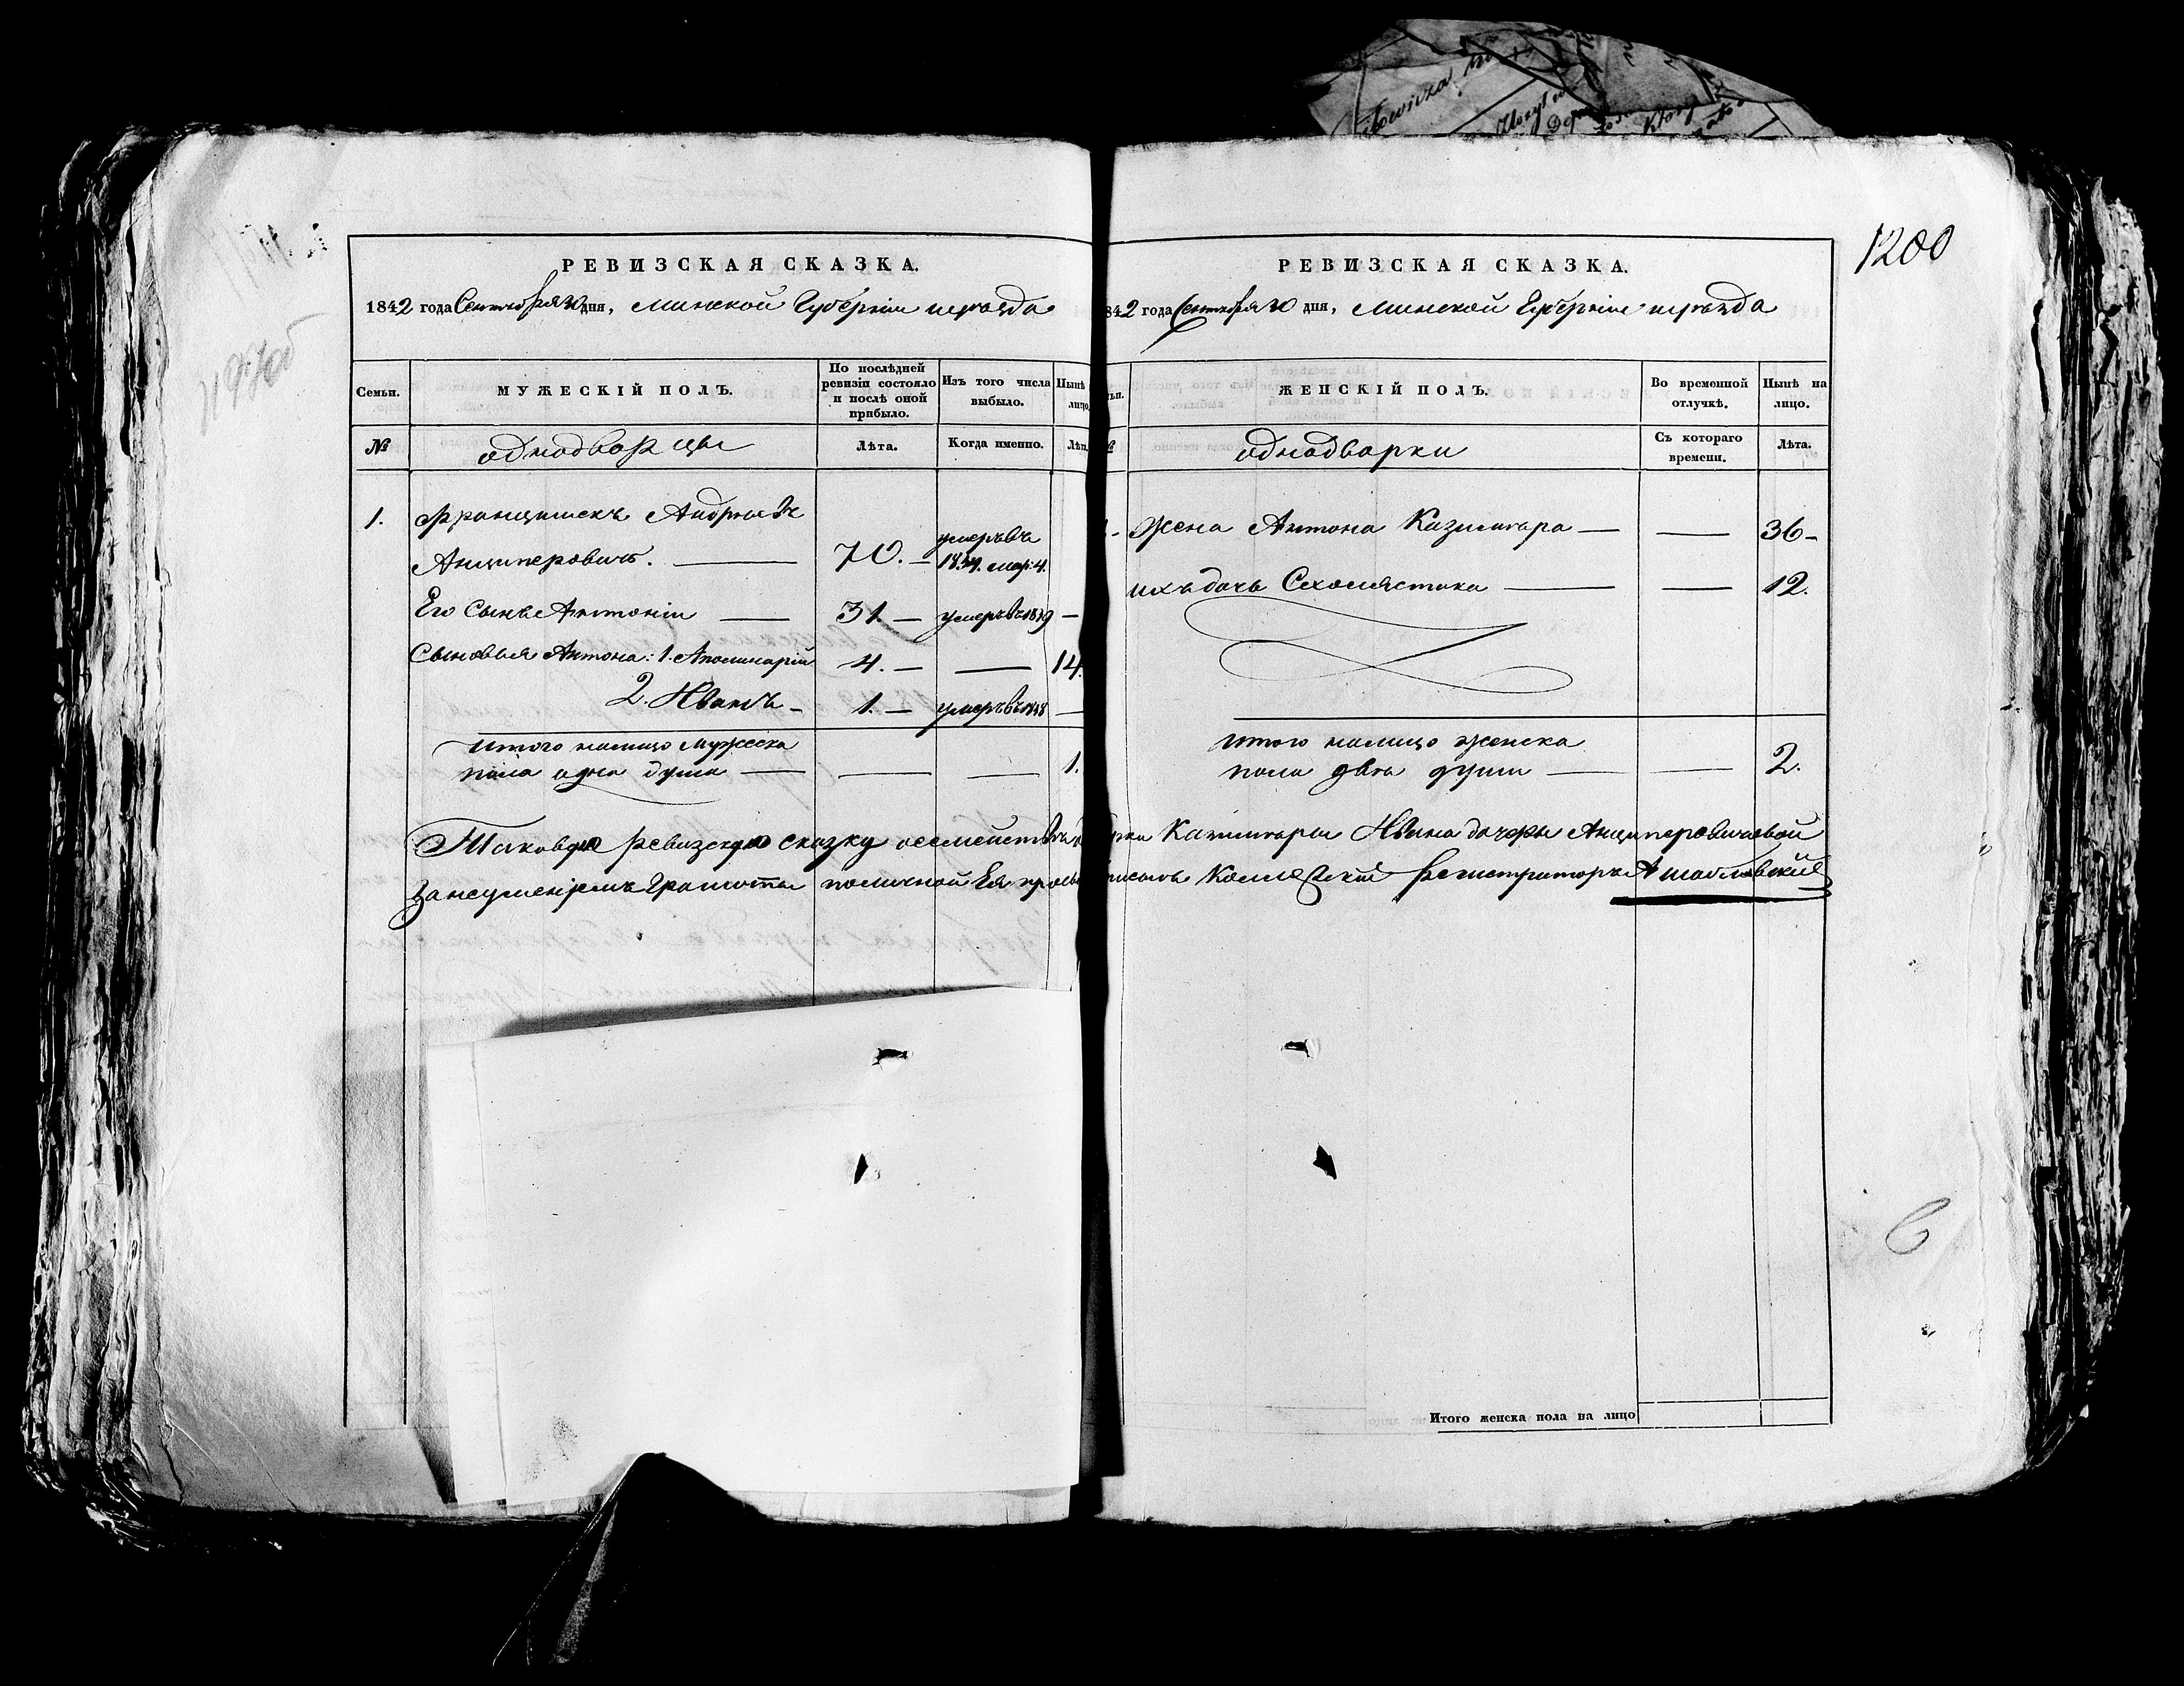 1200
РЕВИЗСКАЯ СКАЗКА.
1842 года Сентября 30 дня, Минской Губерніи и уѣзда
Семьи.
МУЖЕСКІЙ ПОЛЪ.
По послѣдней
ревизіи состояло
и послѣ оной
прибыло.
Изъ того числа
выбыло.
Нынѣ
лицо.
№
однодворцы
Лѣта.
Когда именно.
Лѣт
1. Францишекъ Андреевъ
Анциперовичъ. — 70. — умеръ въ 1834. мар: 4.
Его Сынъ Антоній — 31. — умеръ въ 1839 —
Сыновья Антона: 1. Аполинарій 4. — — 14.
2. Иванъ — 1. — умеръ въ 1838 —
Итого налицо мужеска
пола одна душа — — — 1.
Таковую ревизскую сказку о семействѣ
за неумѣніемъ Грамоты по личной Ея прось
РЕВИЗСКАЯ СКАЗКА.
842 года Сентября 30 дня, Минской Губерніи и уѣзда
ьи.
ЖЕНСКІЙ ПОЛЪ.
Во временной
отлучкѣ.
Нынѣ на
лицо.
однодворки
Съ котораго
времени.
Лѣта.
Жена Антона Казимира — — 36 —
ихъ дочь Схолястика — — 12.
Итого налицо женска
пола двѣ души — — 2.
рки Казимиры Ивана дочери Анциперовичовой
писалъ Коллежскій Регистраторъ
Итого женска пола на лицо